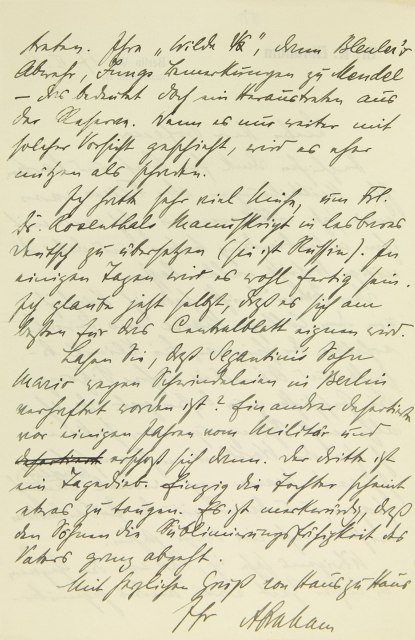 treten. Ihre „Wilde ΨA", dann Bleuler's
Abwehr, Jungs Bemerkungen zu Mendel
— das bedeutet doch ein Heraustreten aus
der Reserve. Wenn es nur weiter mit
solcher Vorsicht geschieht, wird es eher
nützen als schaden.
Ich hatte sehr viel Mühe, um Frl.
Dr. Rosenthals Manuskript in lesbares
Deutsch zu übersetzen (sie ist Russin). In
einigen Tagen wird es wohl fertig sein.
Ich glaube jetzt selbst, daß es sich am
besten für das Centralblatt eignen wird.
Lasen Sie, daß Segantinis Sohn
Mario wegen Schwindeleien in Berlin
verhaftet worden ist? Ein andrer desertierte
vor einigen Jahren vom Militär und
erschoß sich dann. Der dritte ist
ein Tagedieb. Einzig die Tochter scheint
etwas zu taugen. Es ist merkwürdig, daß
den Söhnen die Sublimierungsfähigkeit des
Vaters ganz abgeht.
Mit herzlichem Gruß von Haus zu Haus
Ihr Abraham